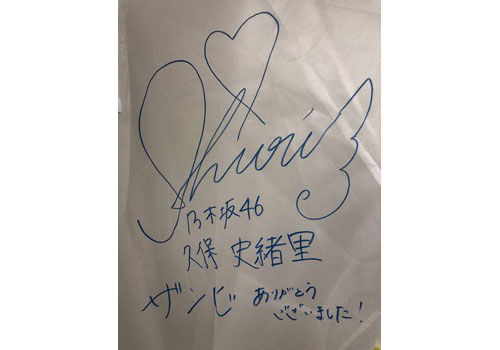 Shiori
乃木坂46
久保 史緒里
ザンビ ありがとう
ございました!